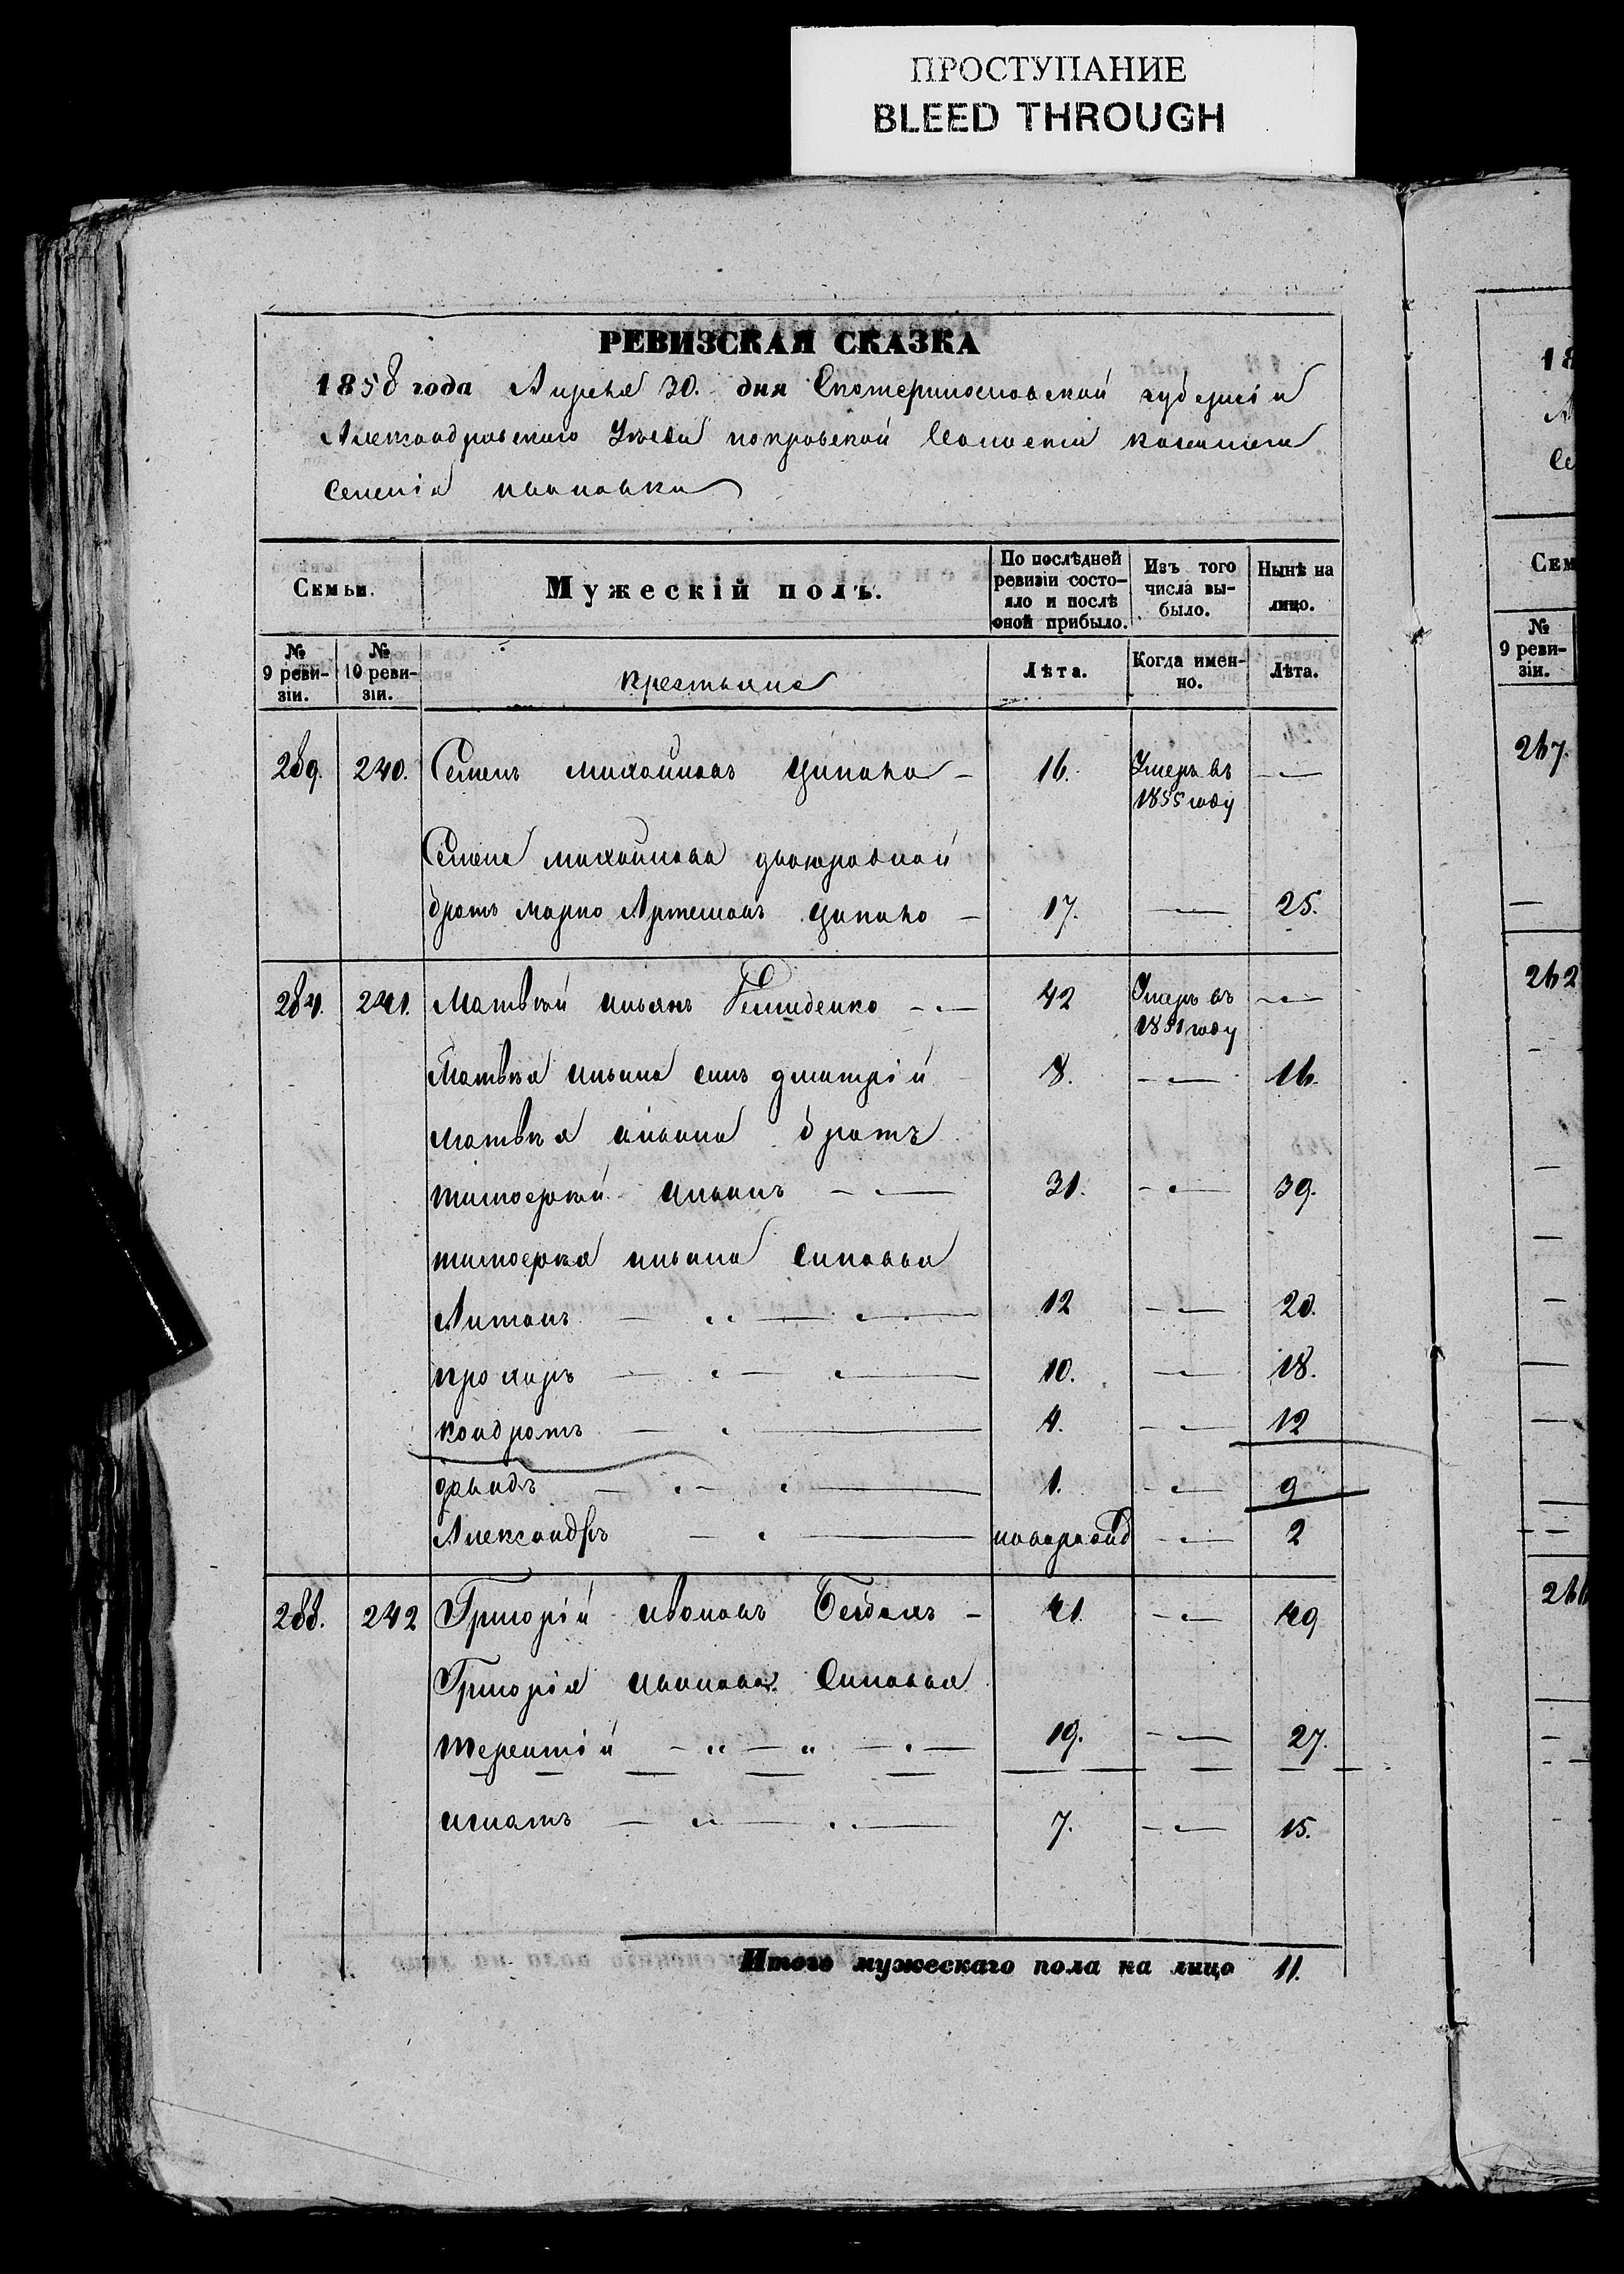 ПРОСТУПАНИЕ
BLEED THROUGH
РЕВИЗСКАЯ СКАЗКА
1858 года Апреля 30. дня Екатеринославской губернiи
Александровского Уезда покровской казенного
Селенiя ивановки
Семьи. Мужескiй полъ. По послѣдней ревизiи состо-яло и послѣ оной прибыло. Изъ того числа вы-было. Нынѣ на лицо.
№ 9 реви-зiи. № 10 реви-зiи. крестьяне Лѣта. Когда имен-но. Лѣта.
289. 240. Семенъ михайловъ Ципако — 16. Умеръ въ —
1855 году
Семена михайлова двоюродной
братъ марко Артемовъ Ципако — 17. — 25.
241. Матвѣй ильинъ — 42 Умеръ въ —
1851 году
Матвѣя ильина синъ дмитрiй 8. — 16.
матвѣя ильина братъ
тимофѣй ильинъ — 31. — 39.
тимофѣя ильина Синовья
Антонъ — 12 — 20.
прохоръ — 10. — 18.
кондратъ — 4. — 12
давидъ — 1. — 9
Александръ — новорожд — 2
288. 242 Григорiй ивановъ — 41. — 49
Григорiя иванова Синовья
терентiй — 19. — 27.
игнатъ — 7. — 15.
Итого мужескаго пола на лицо 11.
18
Се
Сем
№ 9 реви-зiи.
267.
262